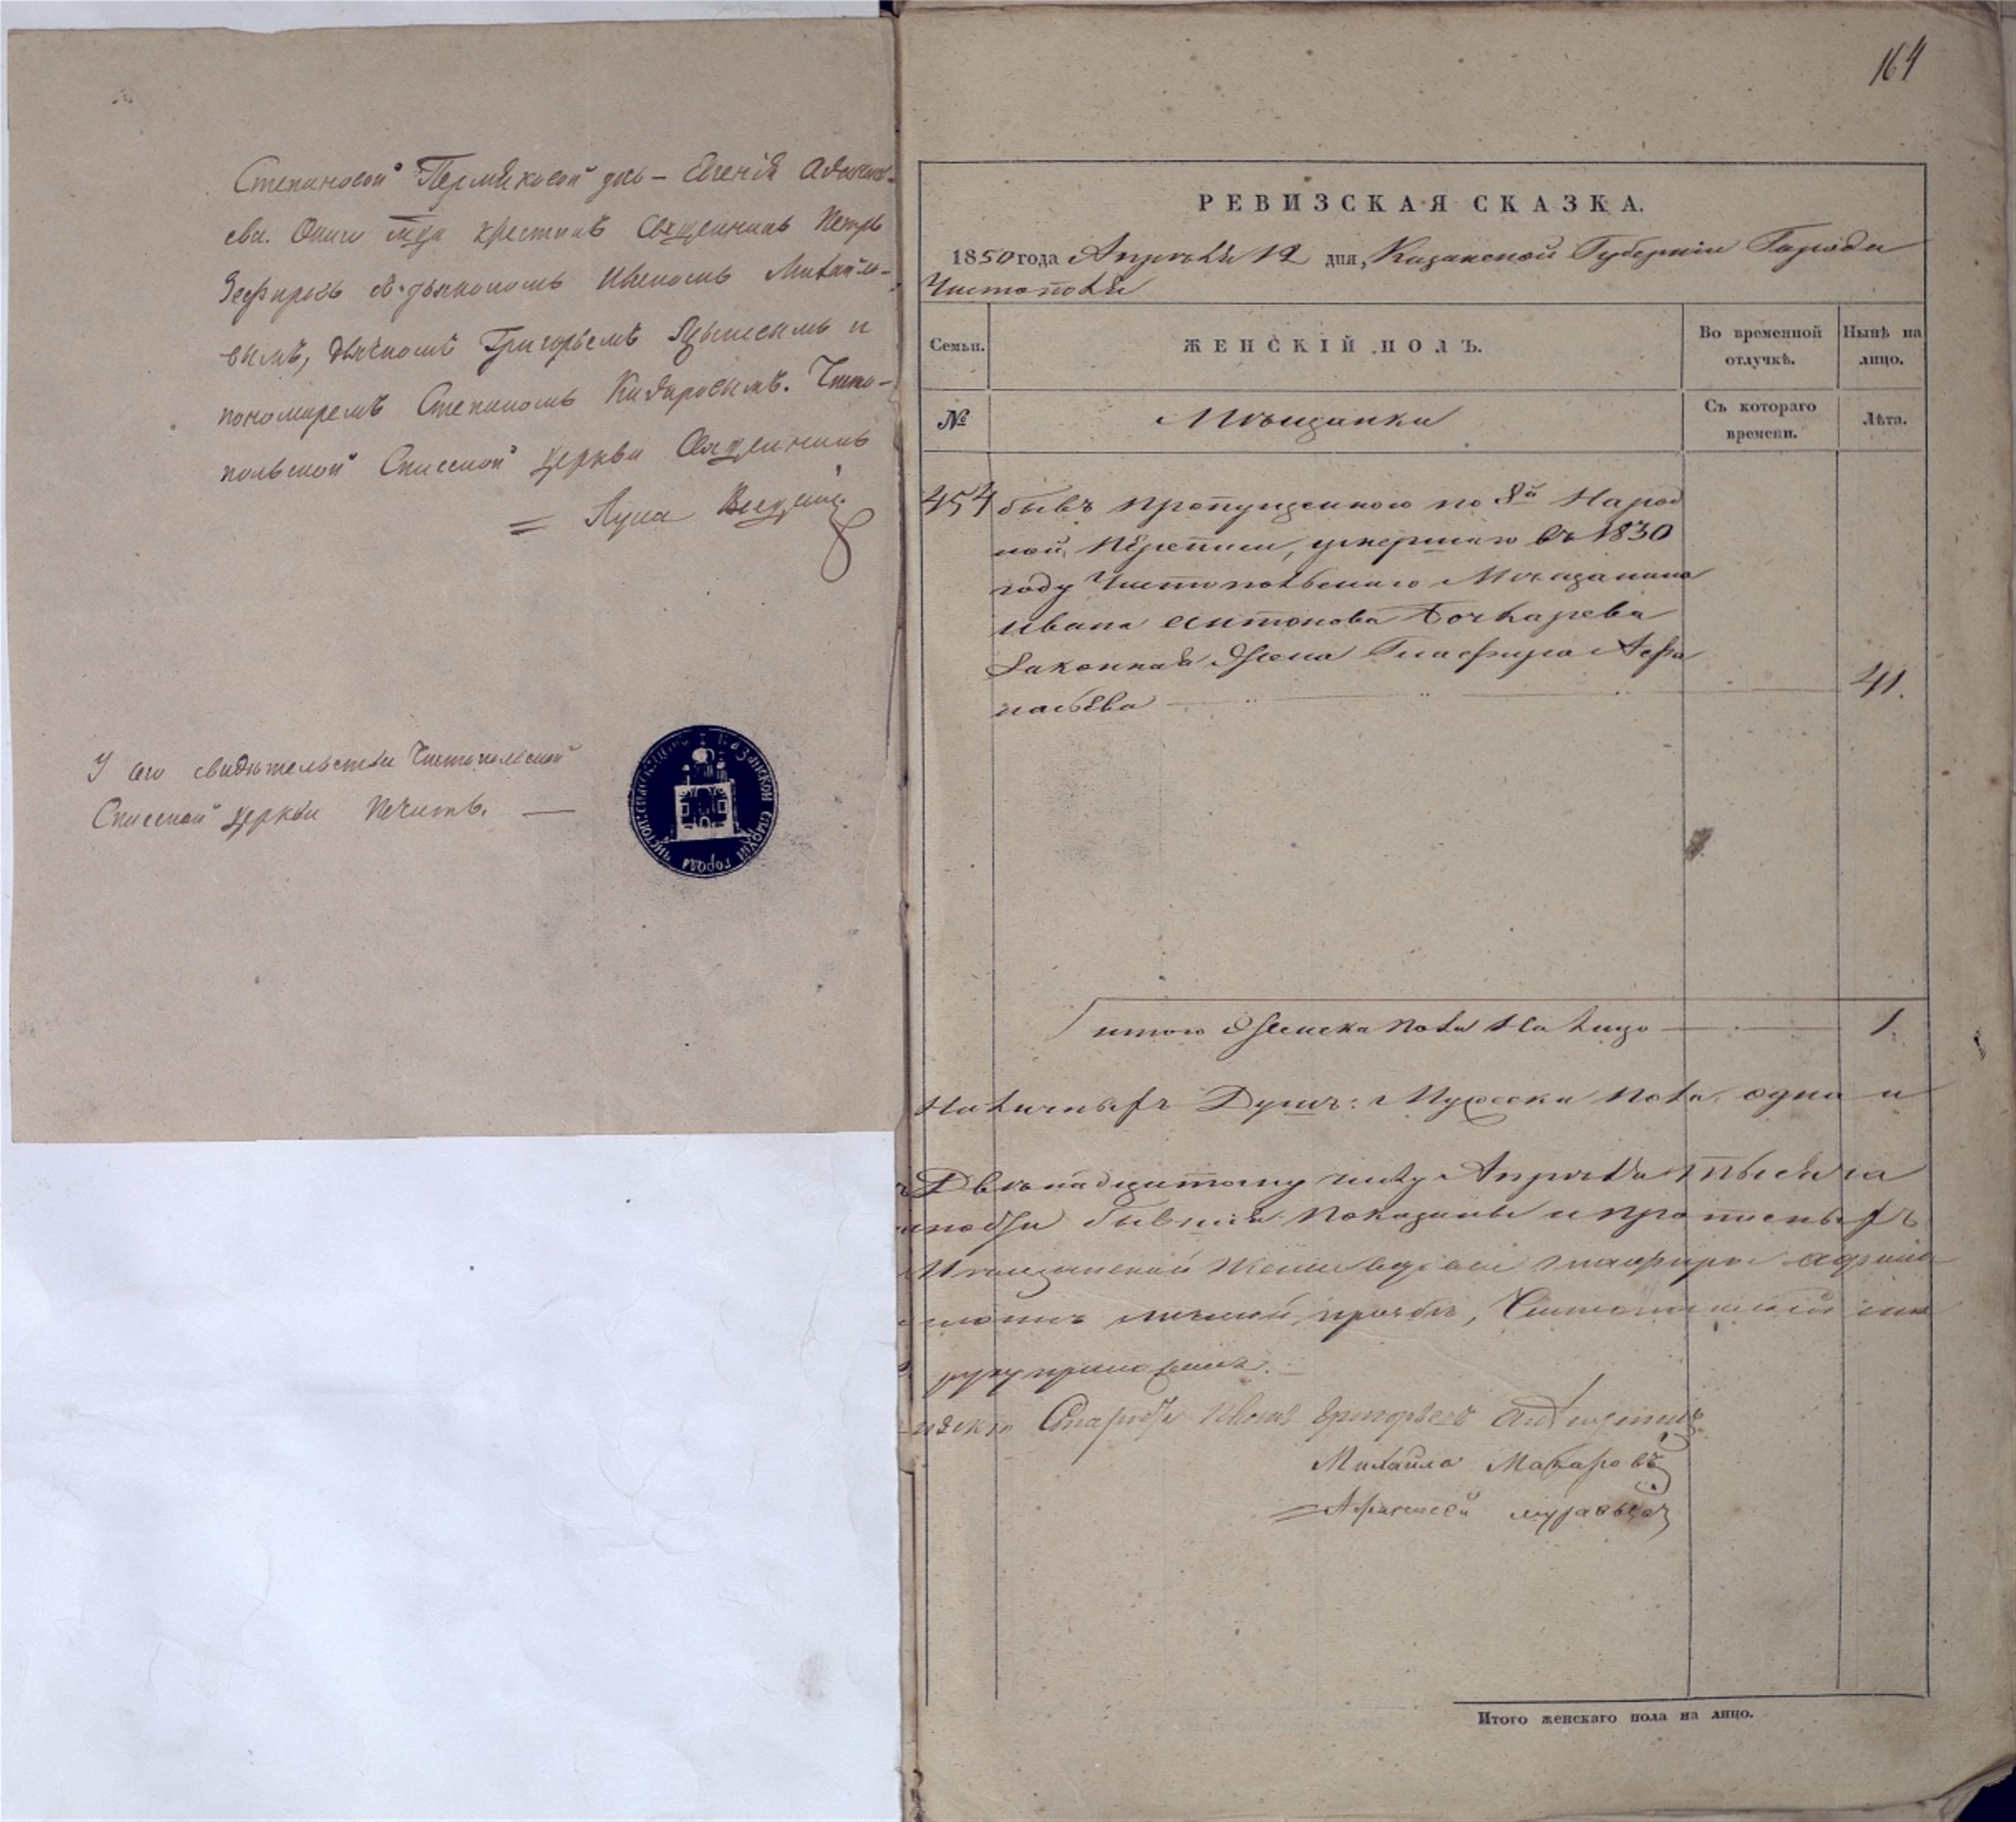 Степановой Пермяковой дочь – Евгенія Афанась-
ева. Оныхъ крестилъ Священникъ Петръ
Зефировъ съ дьякономъ Иваномъ Михайло-
вымъ, дьячкомъ Григорьемъ и
пономаремъ Степаномъ Кидаровымъ. Чисто-
польской Спасской церкви Священникъ
Лука
У сего свидѣтельства Чистопольской
Спасской церкви печать. —
164
РЕВИЗСКАЯ СКАЗКА.
1850 года Апрѣля 12 дня, Казанской Губерніи Города
Чистополя
Семьи.
ЖЕНСКІЙ ПОЛЪ.
Во временной отлучкѣ.
Нынѣ на лицо.
№
Мѣщанки
Съ котораго времени.
Лѣта.
454 бывъ пропущеннаго по 8й Народ
ной переписи, умершаго въ 1830
году Чистопольскаго Мѣщанина
Ивана Антонова Бочкарева
Законная Жена Глафира Афа
насьева 41.
итого Женска пола На лицо 1.
Наличныхъ Душъ: Мужеска пола одна и
Двѣнадцатому числу Апрѣля тысяча
бывшія показаны и прописныхъ
женки вдовы Глафиры
личной прозьбѣ,
руку приложилъ.
Староста Иванъ Григорьевъ
Михайла Макаровъ
Афанасей Муравьевъ
Итого женскаго пола на лицо.